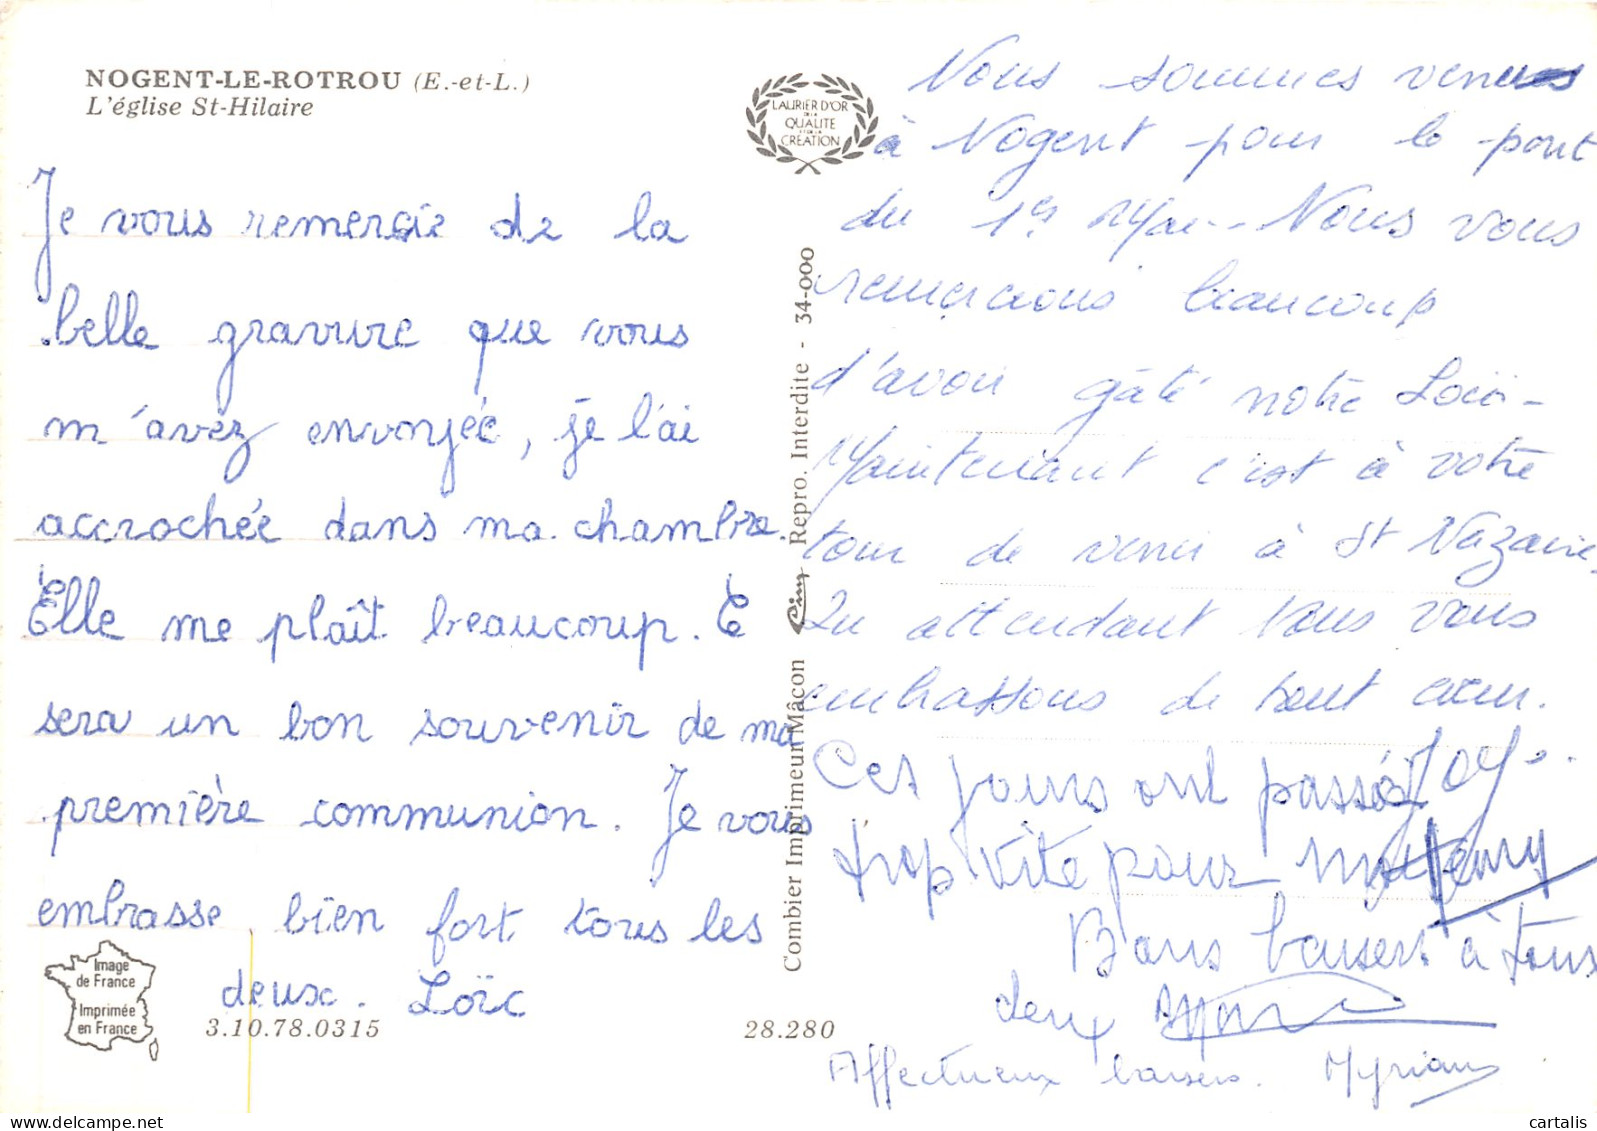 NOGENT-LE-ROTROU (E.-et-L.)
L'église St-Hilaire
LAURIER D'OR
DE LA
QUALITE
ET DE LA
CRÉATION
Je vous remercie de la
belle gravure que vous
m'avez envoyée, je l'ai
accrochée dans ma chambre.
Elle me plaît beaucoup. E
sera un bon souvenir de ma
première communion. Je vous
embrasse bien fort tous les
deux. Loïc
Image
de France
Imprimée
en France
3.10.78.0315
28.280
Combier Imprimeur Mâcon Cim Repro. Interdite - 34-000
Nous sommes venus
à Nogent pour le pont
du 1er Mai.. Nous vous
remercions beaucoup
d'avoir gâté notre Loïc -
Maintenant c'est à votre
tour de venir à St Nazaire.
En attendant nous vous
embrassons de tout cœur.
Ces jours ont passé
trop vite pour
Bons baisers à tous
deux
Affectueux baisers. Myriam
cartalis